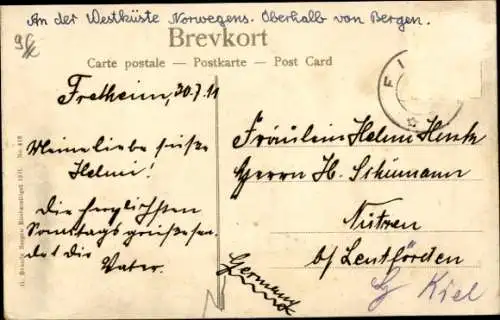 An der Westküste Norwegens. Oberhalb von Bergen.
Brevkort
Carte postale — Postkarte — Post Card
Fretheim, 30.7.11
Meine liebe süße
Helmi!
Die herzlichsten
Sonntagsgrüße sen-
det dir
Vater.
Fräulein Helmi Hentz
Herrn H. Schümann
Nützen
b/ Lentförden
Germany
Kiel